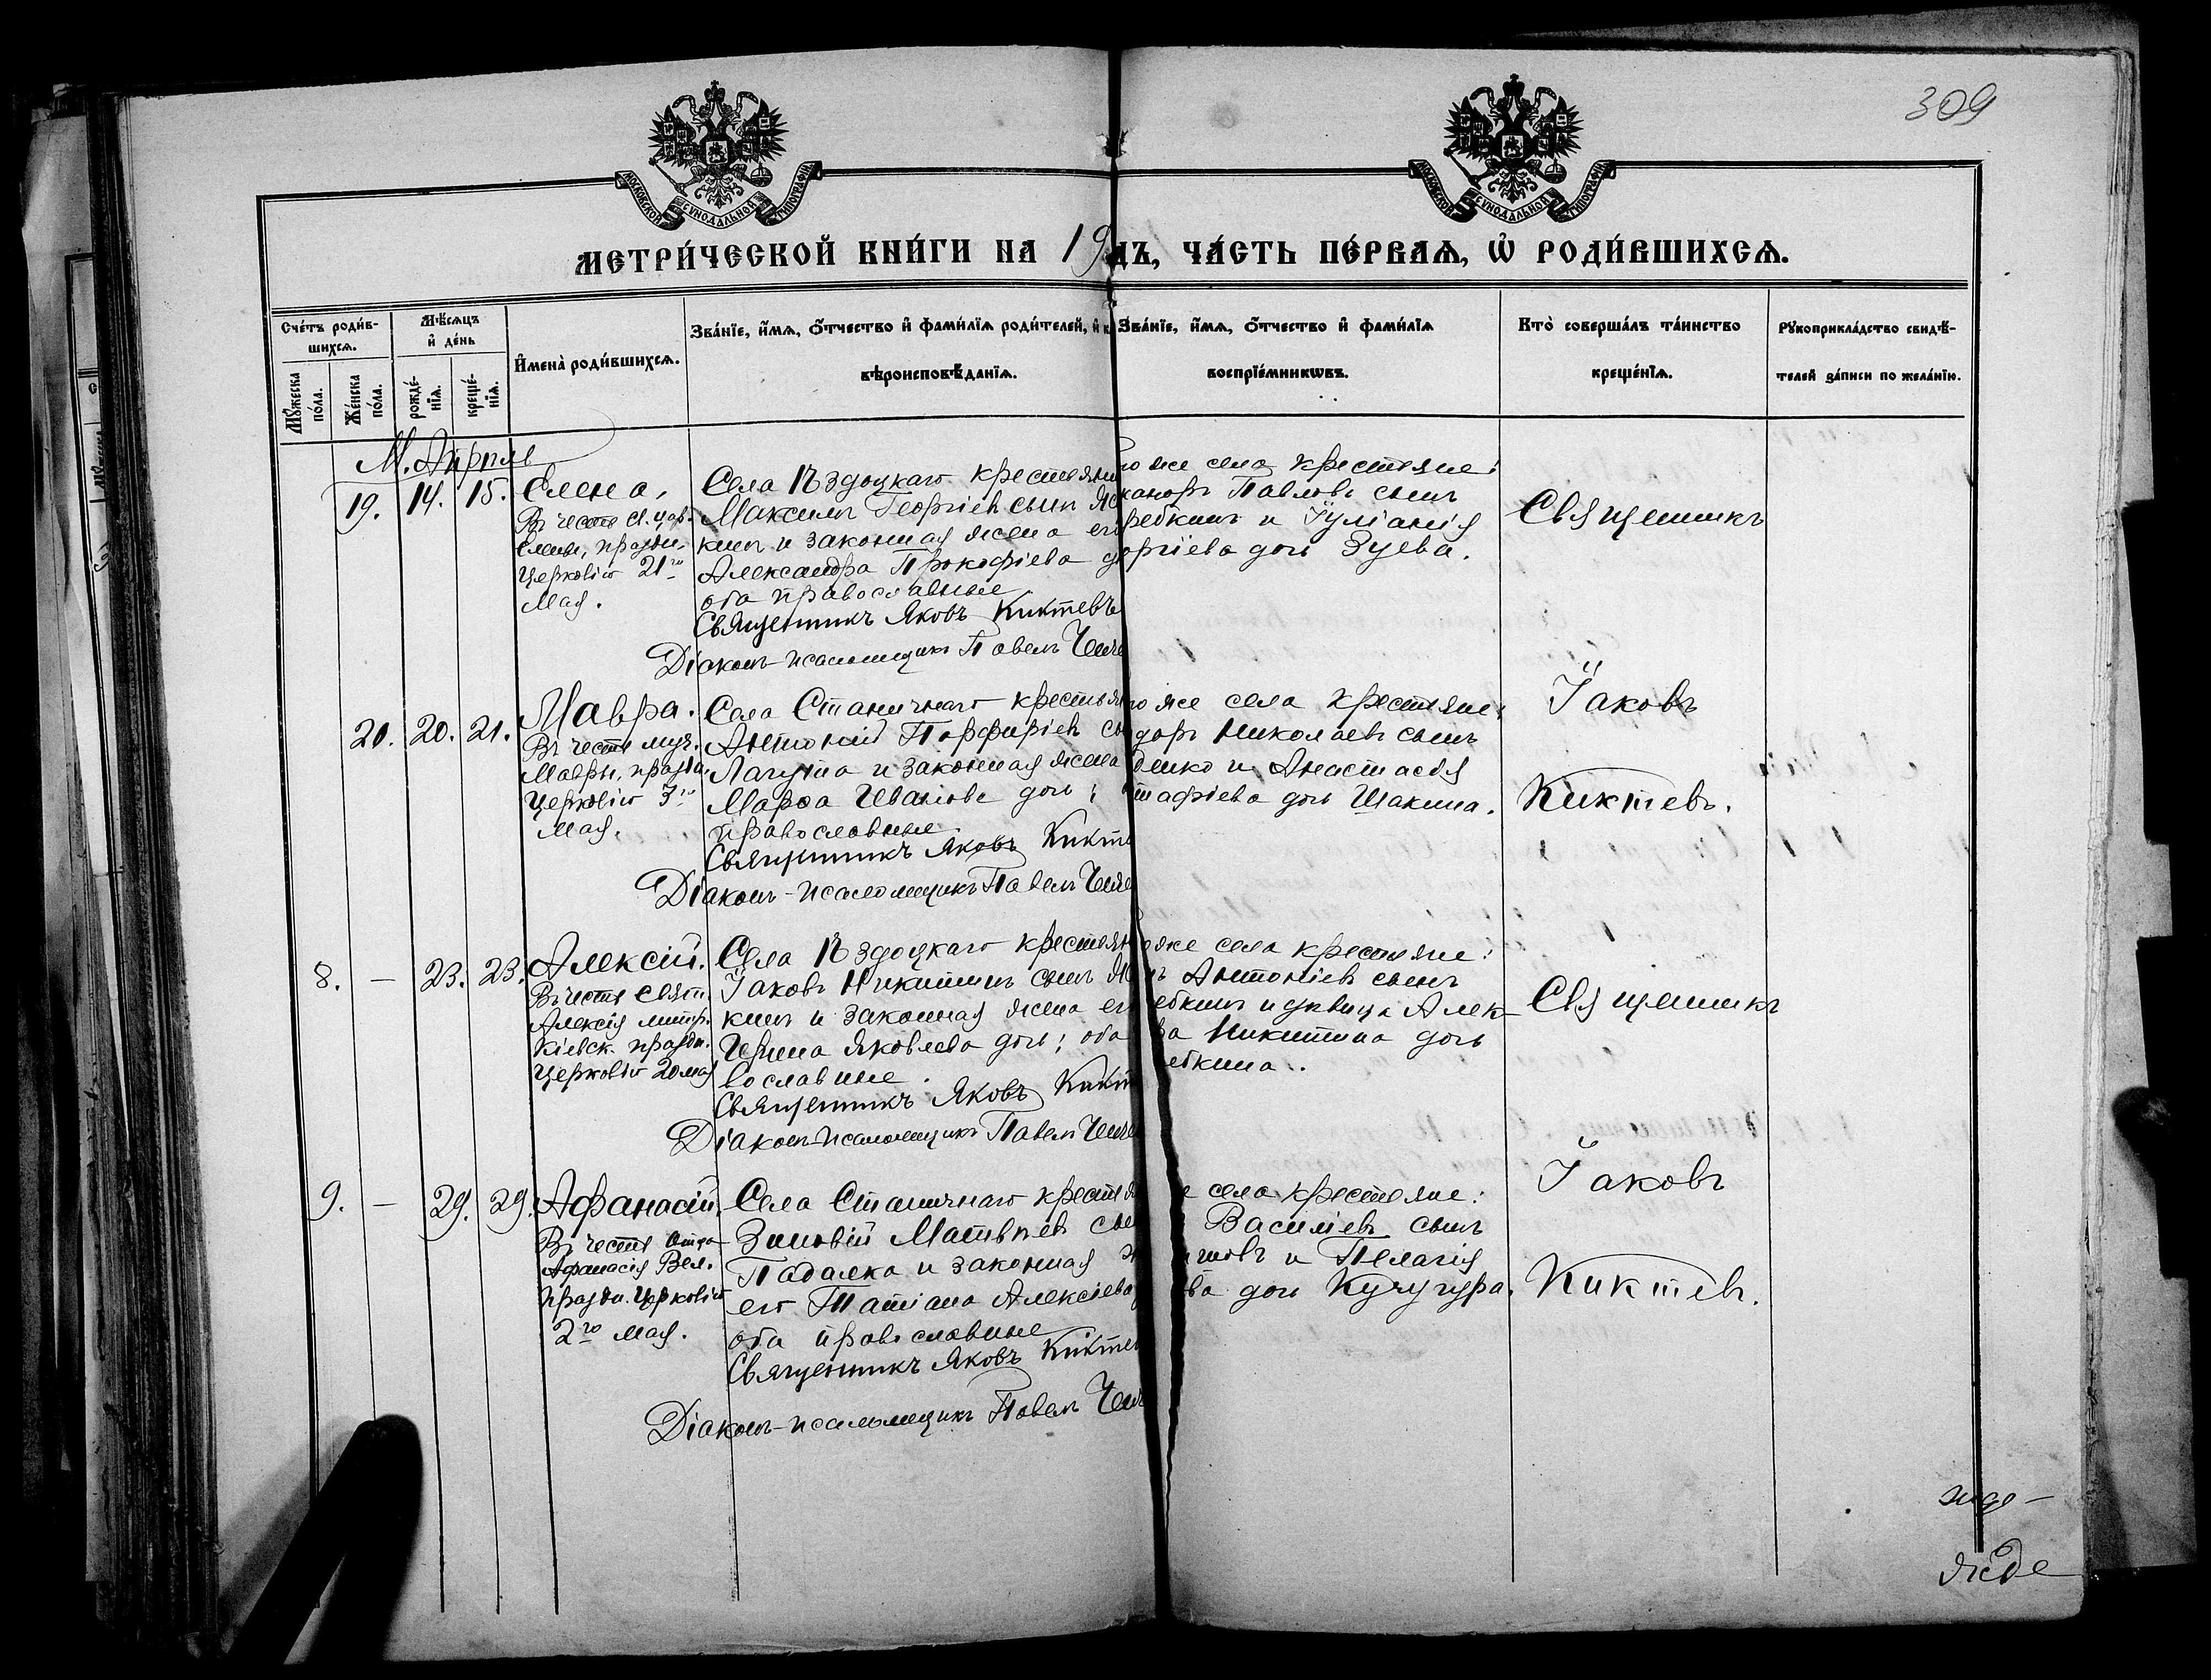 309
МОСКОВСКОЙ СѴНОДАЛЬНОЙ ТИПОГРАФІИ
МОСКОВСКОЙ СѴНОДАЛЬНОЙ ТИПОГРАФІИ
МЕТРИ́ЧЕСКОЙ КНИ́ГИ НА 19 ДЪ, ЧА́СТЬ ПЕ́РВАѦ, Ѡ҆ РОДИ́ВШИХСѦ.
Сче́тъ роди́в-
шихсѧ.
Мꙋ́жеска по́ла.
Же́нска по́ла.
Мѣ́сѧцъ
и҆ де́нь
рожде́-нїѧ.
креще́-нїѧ.
И҆мена̀ роди́вшихсѧ.
Зва́нїе, и҆́мѧ, ѻ҆́тчество и҆ фами́лїѧ роди́телей, и҆
вѣроисповѣ́данїѧ.
Зва́нїе, и҆́мѧ, ѻ҆́тчество и҆ фами́лїѧ
воспрїе́мникѡвъ.
Кто̀ соверша́лъ та́инство
креще́нїѧ.
Рꙋкоприкла́дство свидѣ́-
телей за́писи по жела́нїю.
М. Апрпль
19. 14. 15.
Елена,
Въ честь св. цар.
Елены, праздн.
Церковію 21го
Мая.
Села Ѣздоцкаго крестьянин
Максимъ Георгіевъ сынъ Яс
кинъ и законная жена его
Александра Прокофіева д
оба православные
Священникъ Яковъ Киктевъ
Діаконъ-псаломщикъ Павелъ
го же села крестьяне:
каноръ Павловъ сынъ
ребкинъ и Іуліанія
оргіева дочь Зуева.
Священникъ
20. 20. 21.
Мавра.
Въ честь муч.
Мавры, праздн.
Церковію 3го
Мая.
Села Станичнаго крестьян
Антоній Порфиріевъ сы
Лагута и законная жена
Марѳа Иванова дочь;
православные
Священникъ Яковъ Кикте
Діаконъ-псаломщикъ Павелъ
го же села крестьяне:
доръ Николаевъ сынъ
енко и Анастасія
тафіева дочь Шакина.
Іаковъ
Киктевъ.
8. — 23. 23.
Алексій.
Въ честь Свят.
Алексія митр.
Кіевск. праздн.
Церковію 20 мая
Села Ѣздоцкаго крестьян
Іаковъ Никитинъ сынъ Яс
кинъ и законная жена ег
Ирина Яковлева дочь; оба
вославные.
Священникъ Яковъ Кикт
Діаконъ-псаломщикъ Павелъ
оже села крестьяне:
ъ Антоніевъ сынъ
ебкинъ и дѣвица Алек-
ра Никитина дочь
ебкина.
Священникъ
9. — 29. 29.
Афанасій.
Въ честь Отца
Афанасія Вел.
праздн. Церковію
2го мая.
Села Станичнаго крестья
Зиновій Матвѣевъ сын
Падалка и законная ж
его Татіана Алексіева
оба православные
Священникъ Яковъ Киктев
Діаконъ-псаломщикъ Павелъ
е села крестьяне:
Василіевъ сынъ
шовъ и Пелагія
ва дочь Кучугура.
Іаковъ
Киктевъ.